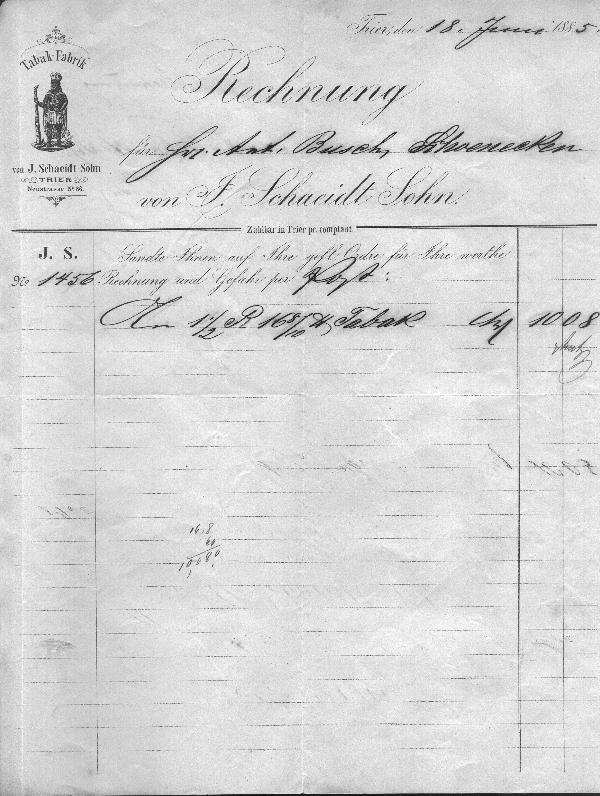 Trier, den 18. Juni 1885.
Tabak-Fabrik
von J. Schaeidt Sohn
TRIER
Neustrasse No 86.
Rechnung
für Hrn. Ant. Busch,
von J. Schaeidt Sohn.
Zahlbar in Trier pr. comptant.
J. S. Sandte Ihnen auf Ihre gefl. Ordre für Ihre werthe
No 1456 Rechnung und Gefahr per Post:
An 1 1/2 R 16 8/10 Tabak 10 08
16,8
60
10,080